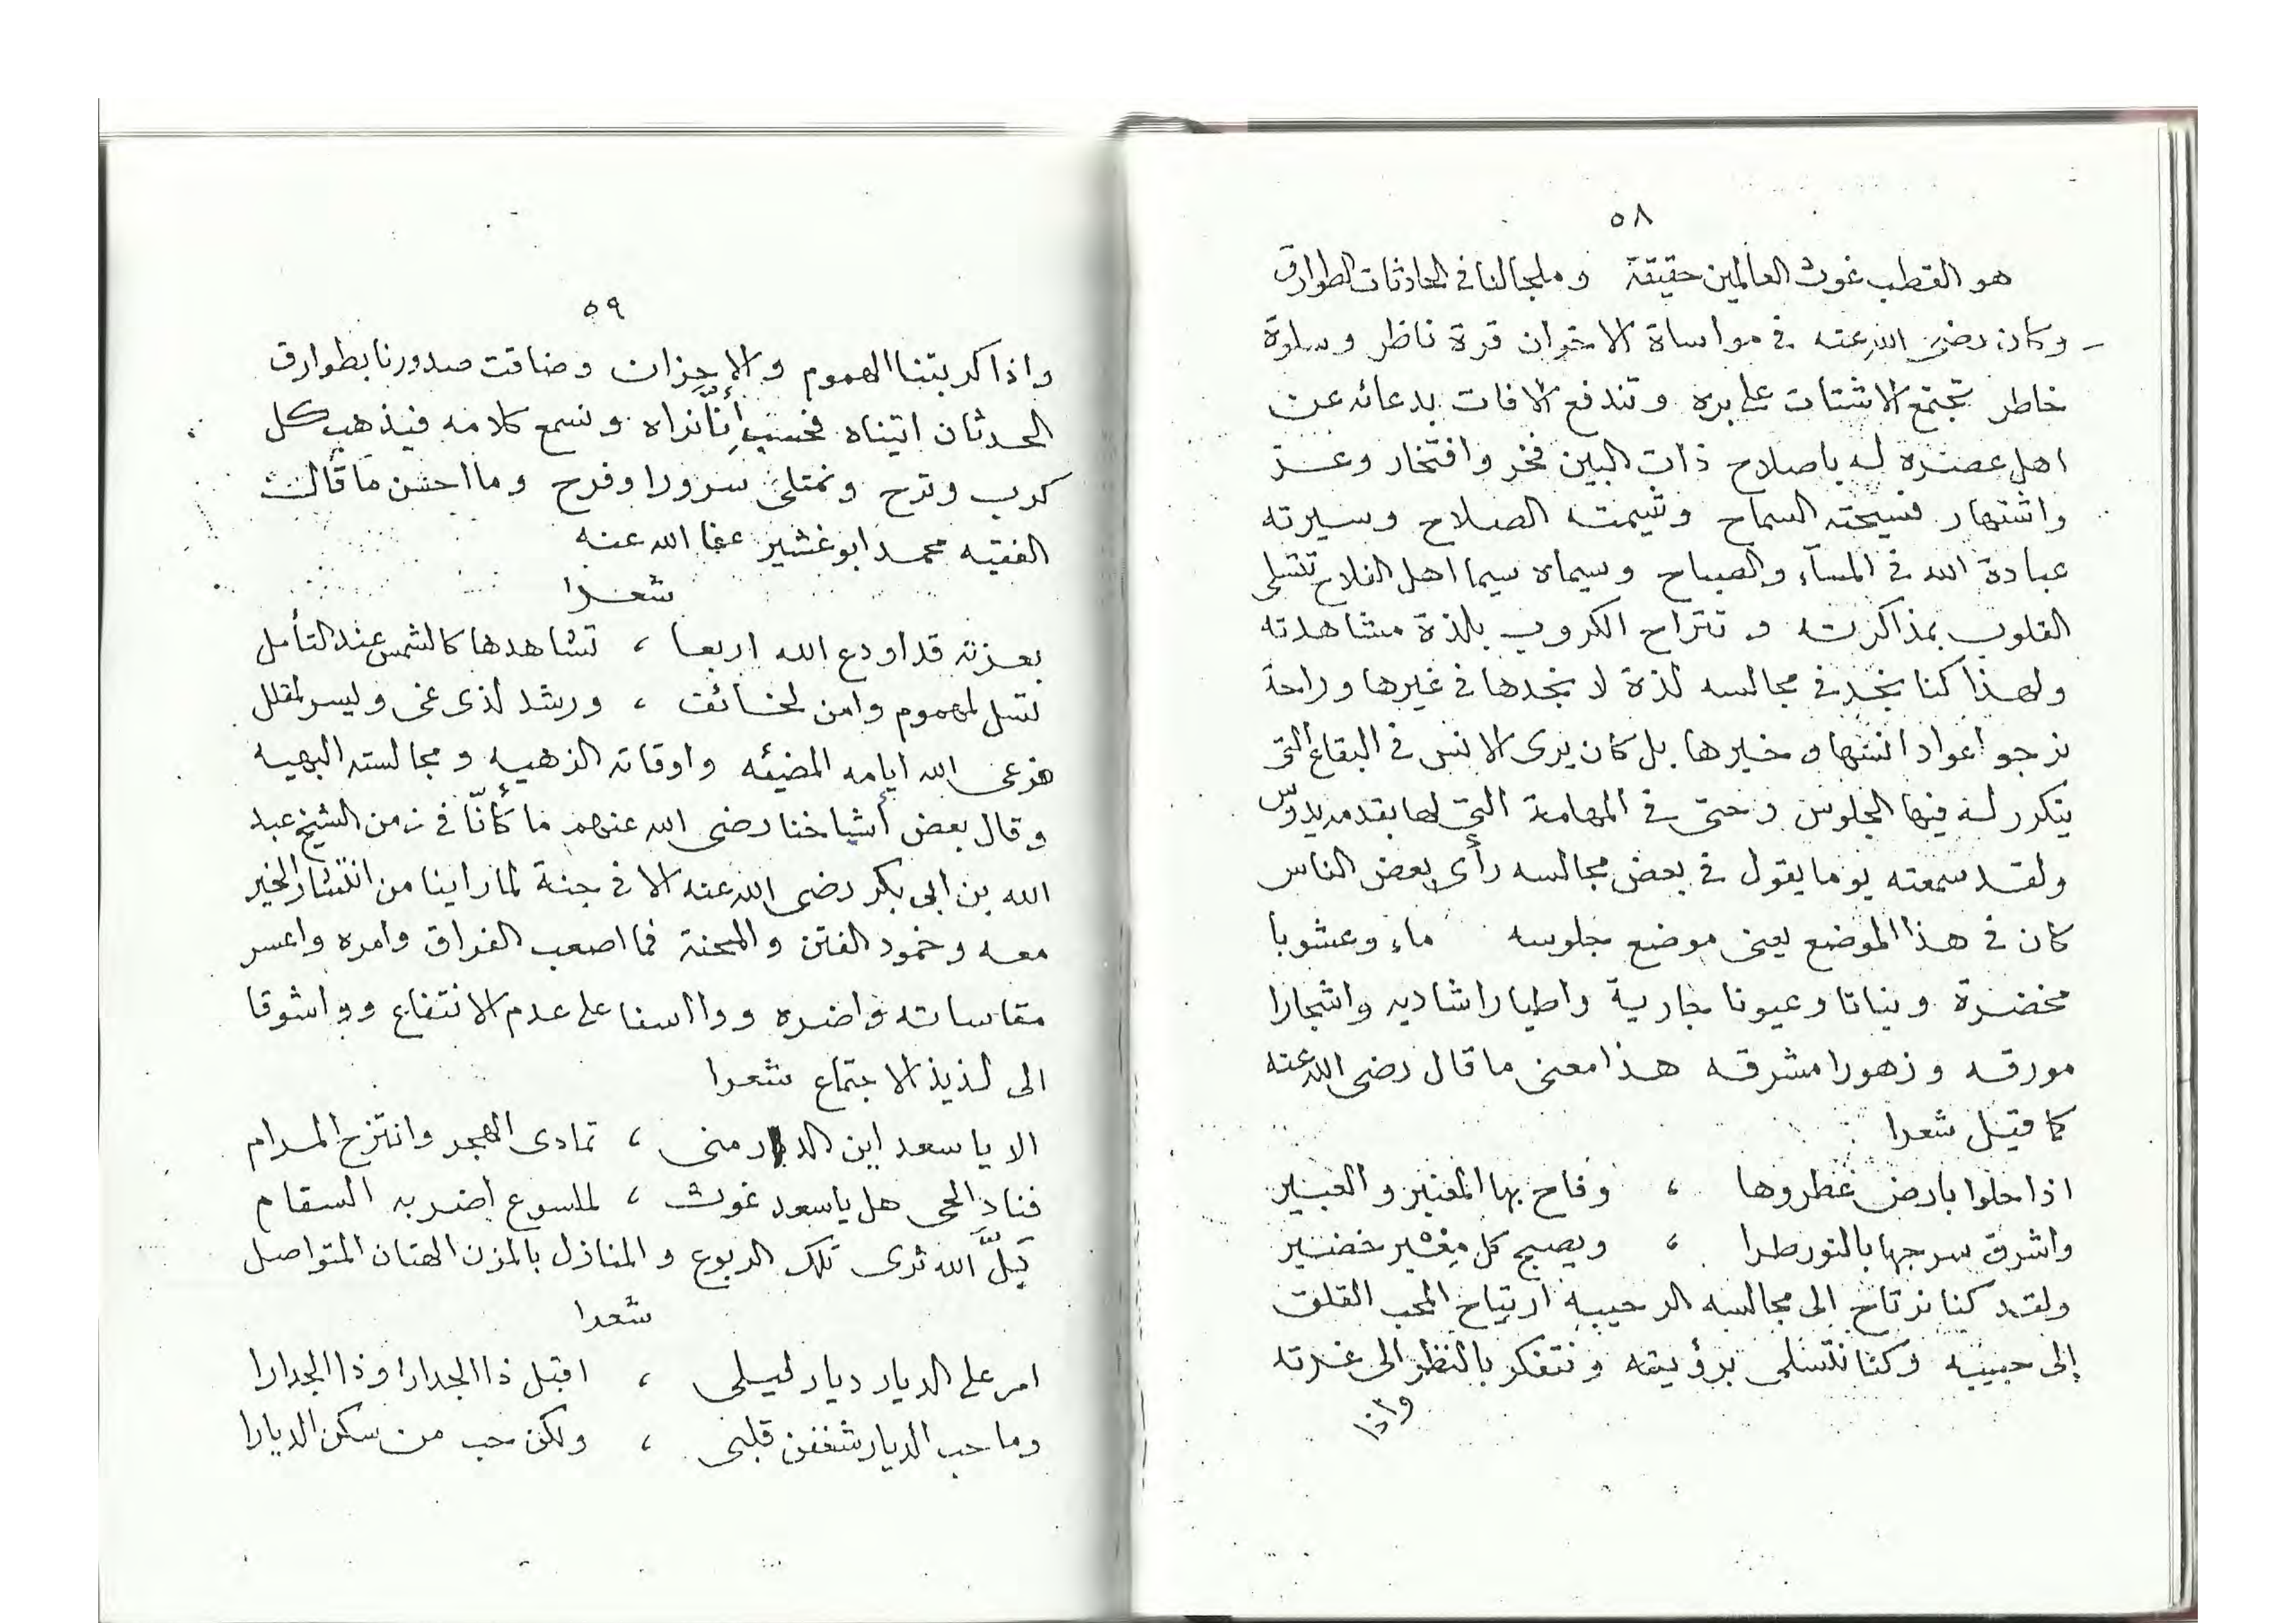 ٥٨
هو القطب غوث العالمين حقيقة وملجا لنا في الحادثات الطوارق
وكان رضى الله عنه في مواساة الاخوان قرة ناظر وسلوة
خاطر تجتمع الاشتات على بره وتندفع الافات بدعائه عن
اهل عصره له باصلاح ذات البين فخر وافتخار وعز
واشتهار فسيحته السماح وشيمته الصلاح وسيرته
عبادة الله في المسآء والصباح وسيماه سيما اهل الفلاح تتسلى
القلوب بمذاكرته وتنزاح الكروب بلذة مشاهدته
ولهذا كنا نجد في مجالسه لذة لا نجدها في غيرها وراحة
نرجو اعواد انسها وخيرها بل كان يرى الانس في البقاع التى
يتكرر له فيها الجلوس وحتى في المهامة التي لها بقدمه يدوس
ولقد سمعته يوما يقول في بعض مجالسه رأى بعض الناس
كان في هذا الموضع يعنى موضع جلوسه ماء وعشوبا
مخضرة ونباتا وعيونا جارية واطيارا شاديه واشجارا
مورقه وزهورا مشرقه هذا معنى ما قال رضى الله عنه
كما قيل شعرا
اذا حلوا بارض عطروها ، وفاح بها العنبر والعبير
واشرق سرجها بالنور طرا ، ويصبح كل مغبر خضير
ولقد كنا نرتاح الى مجالسه الرحيبه ارتياح المحب القلق
إلى حبيبه وكنا نتسلى برؤيته ونتفكر بالنظر الى غرته
واذا
٥٩
واذا كربتنا الهموم والاحزان وضاقت صدورنا بطوارق
الحدثان اتيناه فحسب أنّا نراه ونسمع كلامه فيذهب كل
كرب وترح ونمتلئ سرورا وفرح وما احسن ما قالت
الفقيه محمد ابوغشير عفا الله عنه
شعرا
بعزته قد اودع الله اربعا ، تشاهدها كالشمس عند التأمل
تسل لمهموم وامن لخائف ، ورشد لذى غى ويسر لمقلل
فرعى الله ايامه المضيئه واوقاته الذهبيه ومجالسته البهيه
وقال بعض أشياخنا رضى الله عنهم ما كأنّا في زمن الشيخ عبد
الله بن ابى بكر رضى الله عنه الا في جنة لما راينا من انتشار الخير
معه وخمود الفتن والمحنة فما اصعب الفراق وامره واعسر
مقاساته واضره ووااسفا على عدم الانتفاع وواشوقا
الى لذيذ الاجتماع شعرا
الا يا سعد اين الدار منى ، تمادى الهجر وانتزح المرام
فناد الحى هل يا سعد غوث ، لملسوع اضر به السقام
بَلَّ الله ثرى تلك الربوع والمنازل بالمزن الهتان المتواصل
شعرا
امر على الديار ديار ليلى ، اقبل ذا الجدارا وذا الجدارا
وما حب الديار شغفن قلبى ، ولكن حب من سكن الديارا